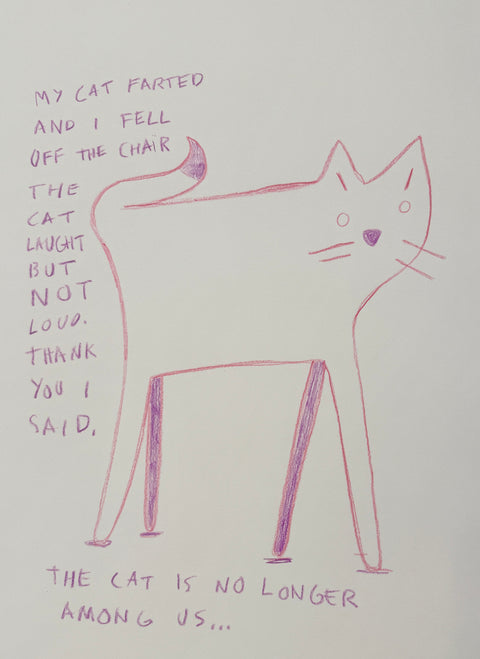 MY CAT FARTED
AND I FELL
OFF THE CHAIR
THE
CAT
LAUGHT
BUT
NOT
LOUD.
THANK
YOU I
SAID.
THE CAT IS NO LONGER
AMONG US...